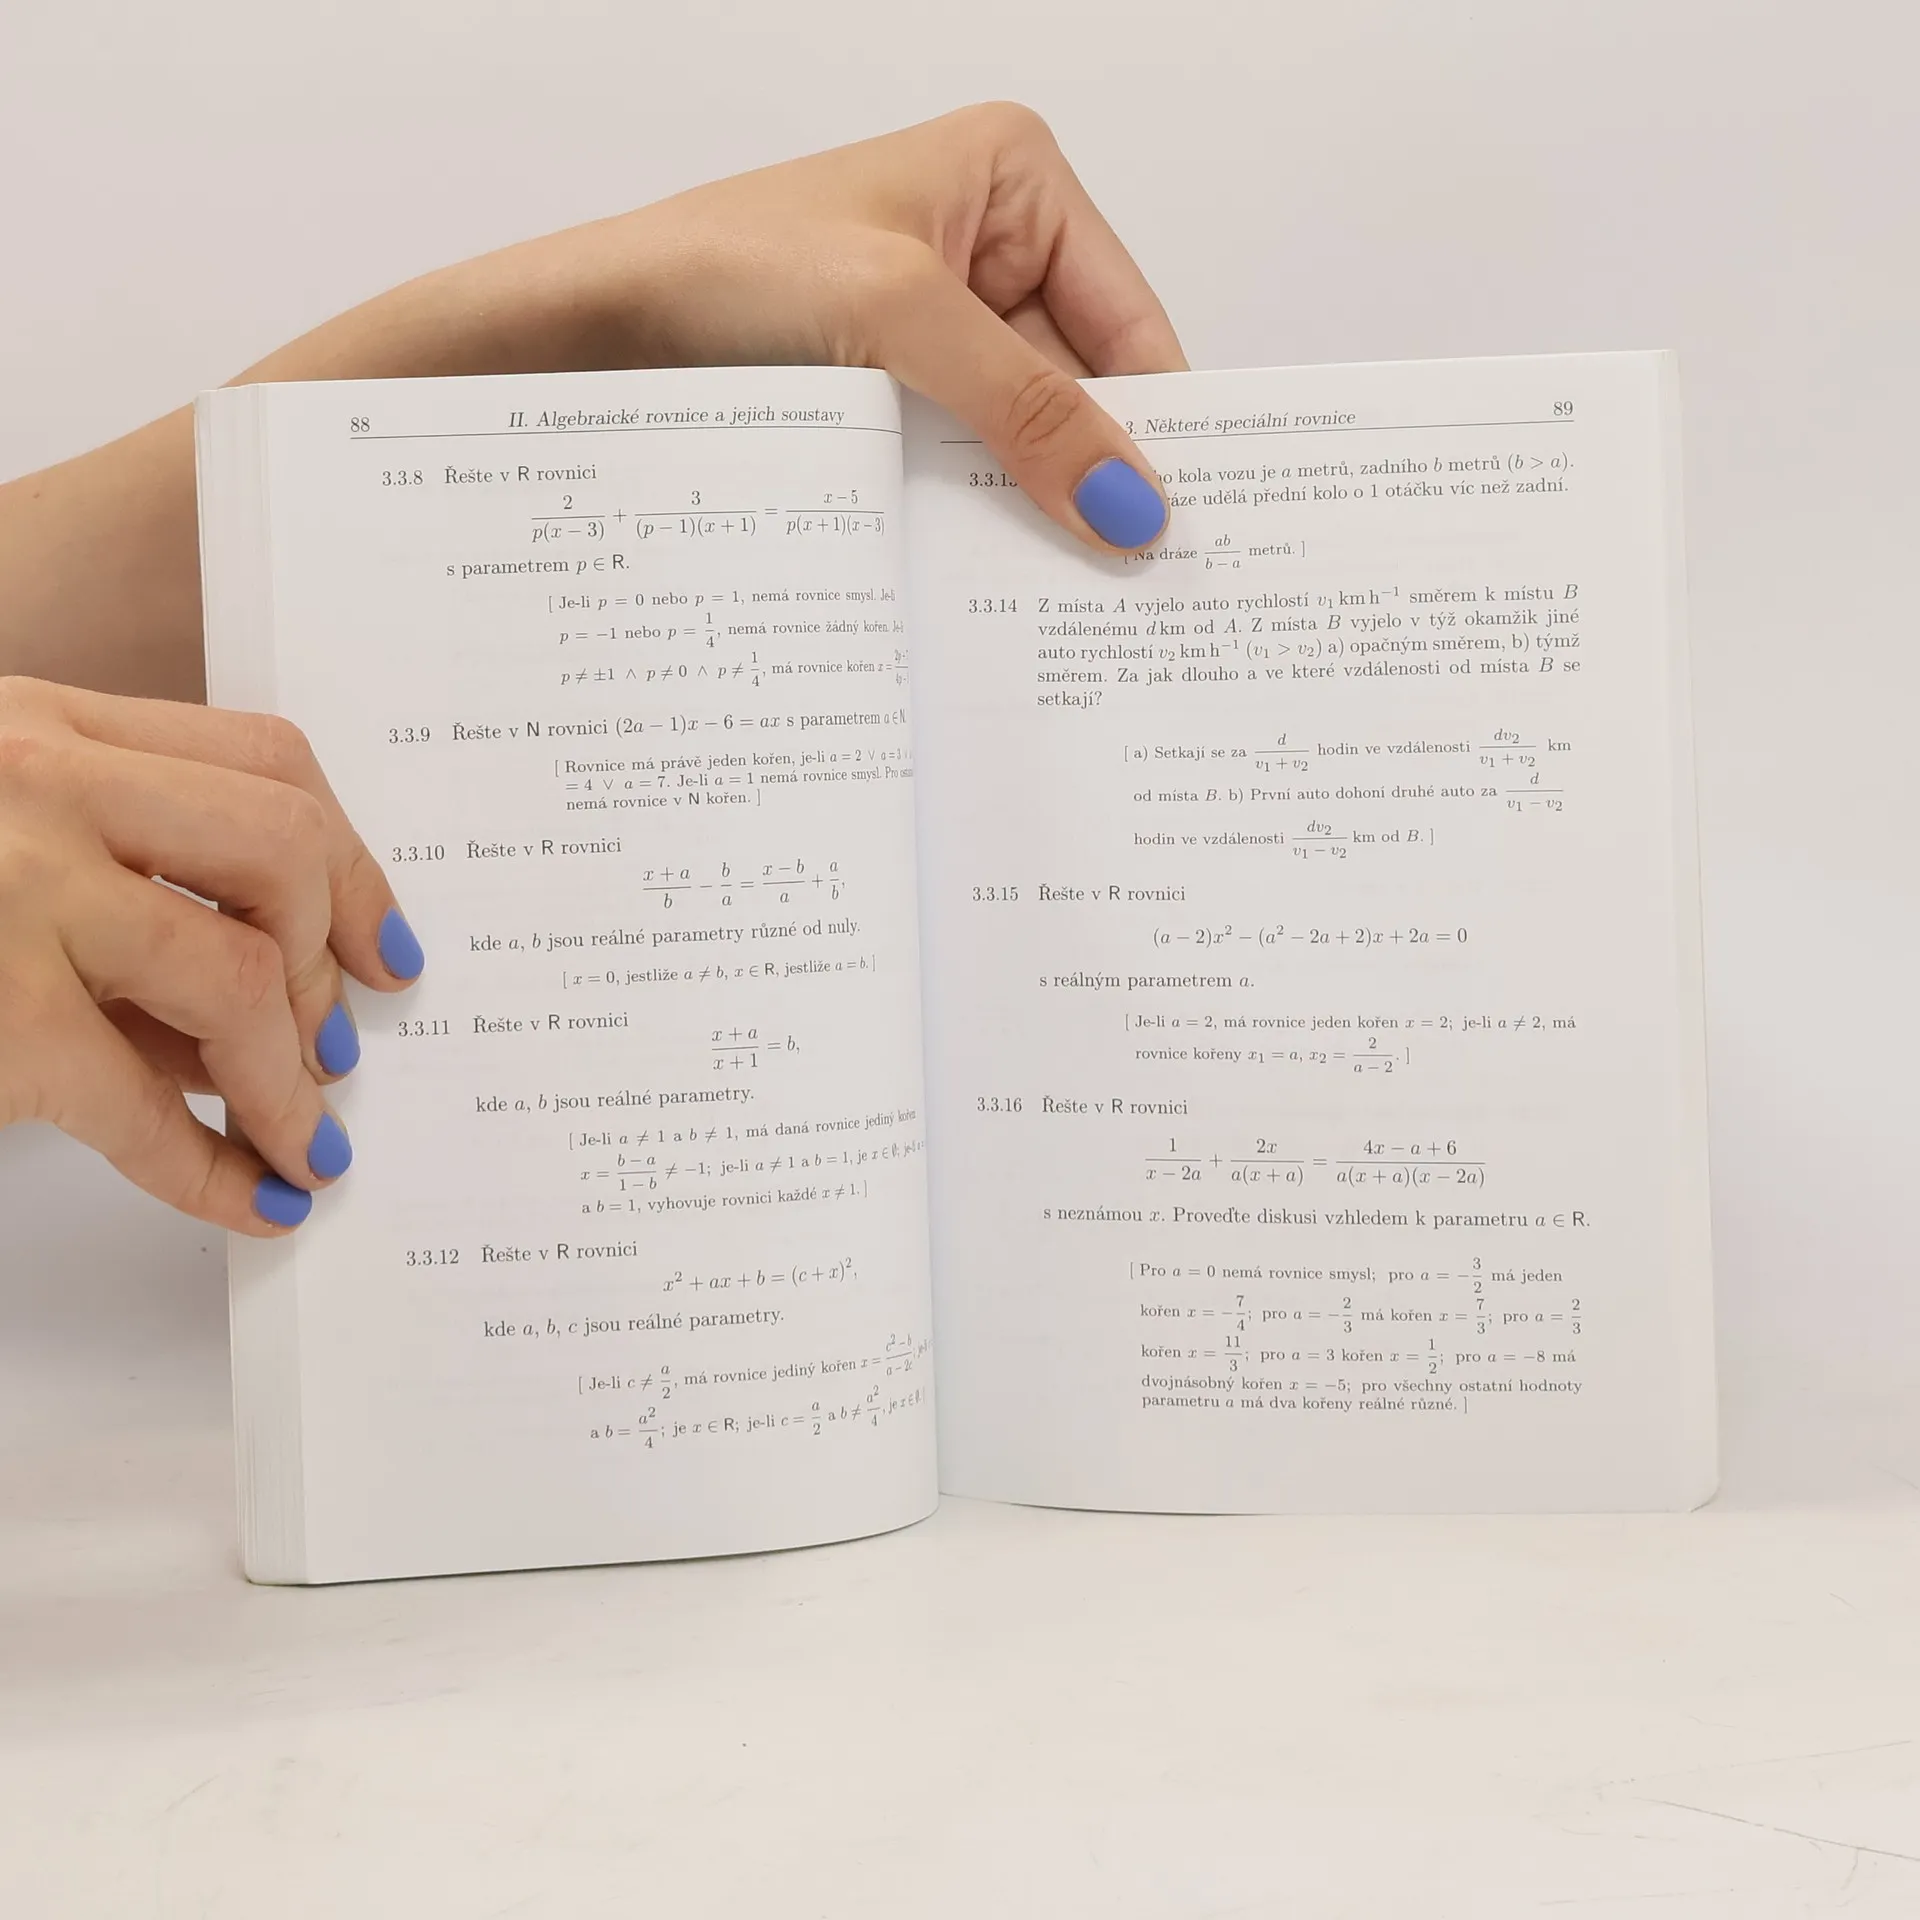 88 II. Algebraické rovnice a jejich soustavy
3.3.8 Řešte v R rovnici
2/(p(x − 3)) + 3/((p − 1)(x + 1)) = (x − 5)/(p(x + 1)(x − 3))
s parametrem p ∈ R.
[ Je-li p = 0 nebo p = 1, nemá rovnice smysl. Je-li
p = −1 nebo p = 1/4, nemá rovnice žádný kořen. Je-li
p ≠ ±1 ∧ p ≠ 0 ∧ p ≠ 1/4, má rovnice kořen x =
3.3.9 Řešte v N rovnici (2a − 1)x − 6 = ax s parametrem a ∈ N
[ Rovnice má právě jeden kořen, je-li a = 2 ∨ a = 3 ∨
= 4 ∨ a = 7. Je-li a = 1 nemá rovnice smysl. Pro
nemá rovnice v N kořen. ]
3.3.10 Řešte v R rovnici
(x + a)/b − b/a = (x − b)/a + a/b,
kde a, b jsou reálné parametry různé od nuly.
[ x = 0, jestliže a ≠ b, x ∈ R, jestliže a = b. ]
3.3.11 Řešte v R rovnici
(x + a)/(x + 1) = b,
kde a, b jsou reálné parametry.
[ Je-li a ≠ 1 a b ≠ 1, má daná rovnice jediný kořen
x = (b − a)/(1 − b) ≠ −1; je-li a ≠ 1 a b = 1, je x ∈ ∅; je-li a =
a b = 1, vyhovuje rovnici každé x ≠ 1. ]
3.3.12 Řešte v R rovnici
x² + ax + b = (c + x)²,
kde a, b, c jsou reálné parametry.
[ Je-li c ≠ a/2, má rovnice jediný kořen x = (c² − b)/(a − 2c)
a b = a²/4; je x ∈ R; je-li c = a/2 a b ≠ a²/4, je x ∈ ∅. ]
3. Některé speciální rovnice 89
kola vozu je a metrů, zadního b metrů (b > a).
udělá přední kolo o 1 otáčku víc než zadní.
[ Na dráze ab/(b − a) metrů. ]
3.3.14 Z místa A vyjelo auto rychlostí v₁ km h⁻¹ směrem k místu B
vzdálenému d km od A. Z místa B vyjelo v týž okamžik jiné
auto rychlostí v₂ km h⁻¹ (v₁ > v₂) a) opačným směrem, b) týmž
směrem. Za jak dlouho a ve které vzdálenosti od místa B se
setkají?
[ a) Setkají se za d/(v₁ + v₂) hodin ve vzdálenosti dv₂/(v₁ + v₂) km
od místa B. b) První auto dohoní druhé auto za d/(v₁ − v₂)
hodin ve vzdálenosti dv₂/(v₁ − v₂) km od B. ]
3.3.15 Řešte v R rovnici
(a − 2)x² − (a² − 2a + 2)x + 2a = 0
s reálným parametrem a.
[ Je-li a = 2, má rovnice jeden kořen x = 2; je-li a ≠ 2, má
rovnice kořeny x₁ = a, x₂ = 2/(a − 2). ]
3.3.16 Řešte v R rovnici
1/(x − 2a) + 2x/(a(x + a)) = (4x − a + 6)/(a(x + a)(x − 2a))
s neznámou x. Proveďte diskusi vzhledem k parametru a ∈ R.
[ Pro a = 0 nemá rovnice smysl; pro a = −3/2 má jeden
kořen x = −7/4; pro a = −2/3 má kořen x = 7/3; pro a = 2/3
kořen x = 11/3; pro a = 3 kořen x = 1/2; pro a = −8 má
dvojnásobný kořen x = −5; pro všechny ostatní hodnoty
parametru a má dva kořeny reálné různé. ]